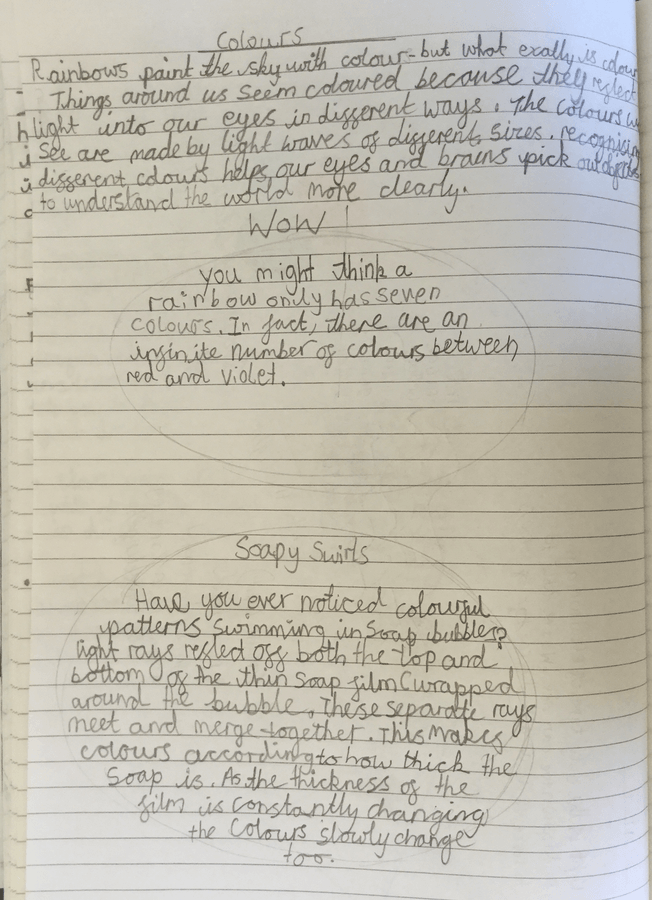 Colours
Rainbows paint the sky with colour - but what exally is colou
Things around us seem coloured because they reflect
light into our eyes in different ways. The colours w
See are made by light waves of different sizes. recognising
different colours helps our eyes and brains pick out objects
to understand the world more clearly.
Wow!
you might think a
rainbow only has seven
colours. In fact, there are an
infinite number of colours between
red and violet.
Soapy Swirls
Have you ever noticed colourful
patterns swimming in soap bubbles?
light rays reflect off both the top and
bottom of the thin soap film (wrapped
around the bubble. These separate rays
meet and merge together. This makes
colours according to how thick the
Soap is. As the thickness of the
film is constantly changing
the Colours slowly change
too.